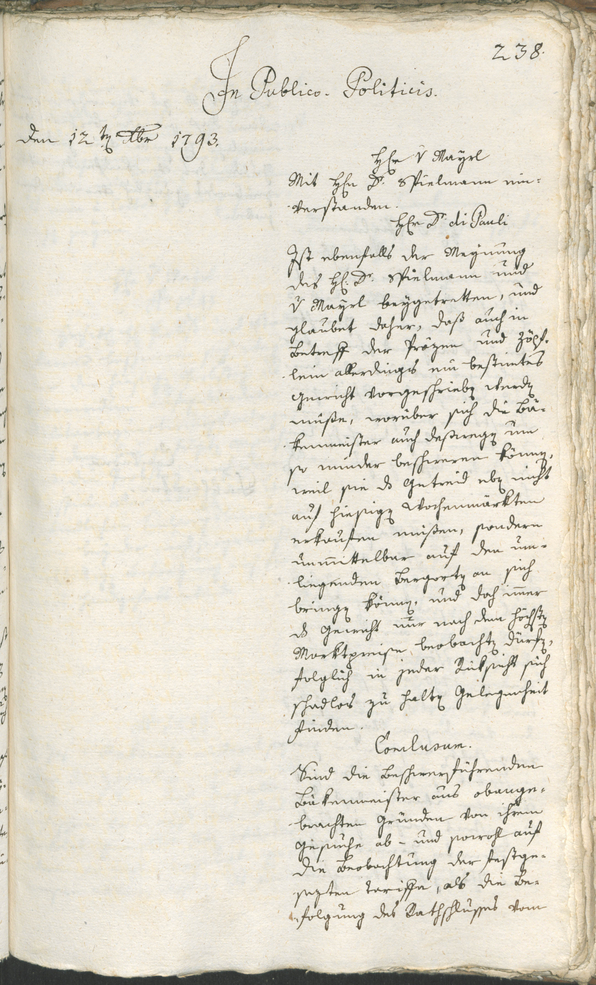 238.
In Publico-Politicis.
den 12 t. Xbr 1793.
H. v Mayrl
Mit H. Dr. Spielmann ein-
verstanden.
H. Dr. di Pauli
Ist ebenfalls der Meynung
des H. Dr. Spielmann und
v Mayrl beygetretten, und
glaubet daher, daß auch in
Betreff der Präzen und Zöpf-
lein allerdings ein bestimtes
Gewicht vorgeschrieben werden
müße, worüber sich die Bä-
kenmeister auch deßwegen um
so minder beschweren können,
weil sie das Getreid eben nicht
auf hiesigen Wochenmärkten
erkaufen müßen, sondern
unmittelbar auf den um-
liegenden Bergorten an sich
bringen können, und doch immer
das Gewicht nur nach dem höchsten
Marktpreise beobachten dürfen,
folglich in jeder Rüksicht sich
schadlos zu halten Gelegenheit
finden.
Conclusum.
Sind die Beschwerführenden
Bäkenmeister aus obange-
brachten Gründen von ihrem
Gesuche ab- und sowohl auf
die Beobachtung der festge-
sezten Tariffe, als die Be-
folgung des Rathschlusses vom